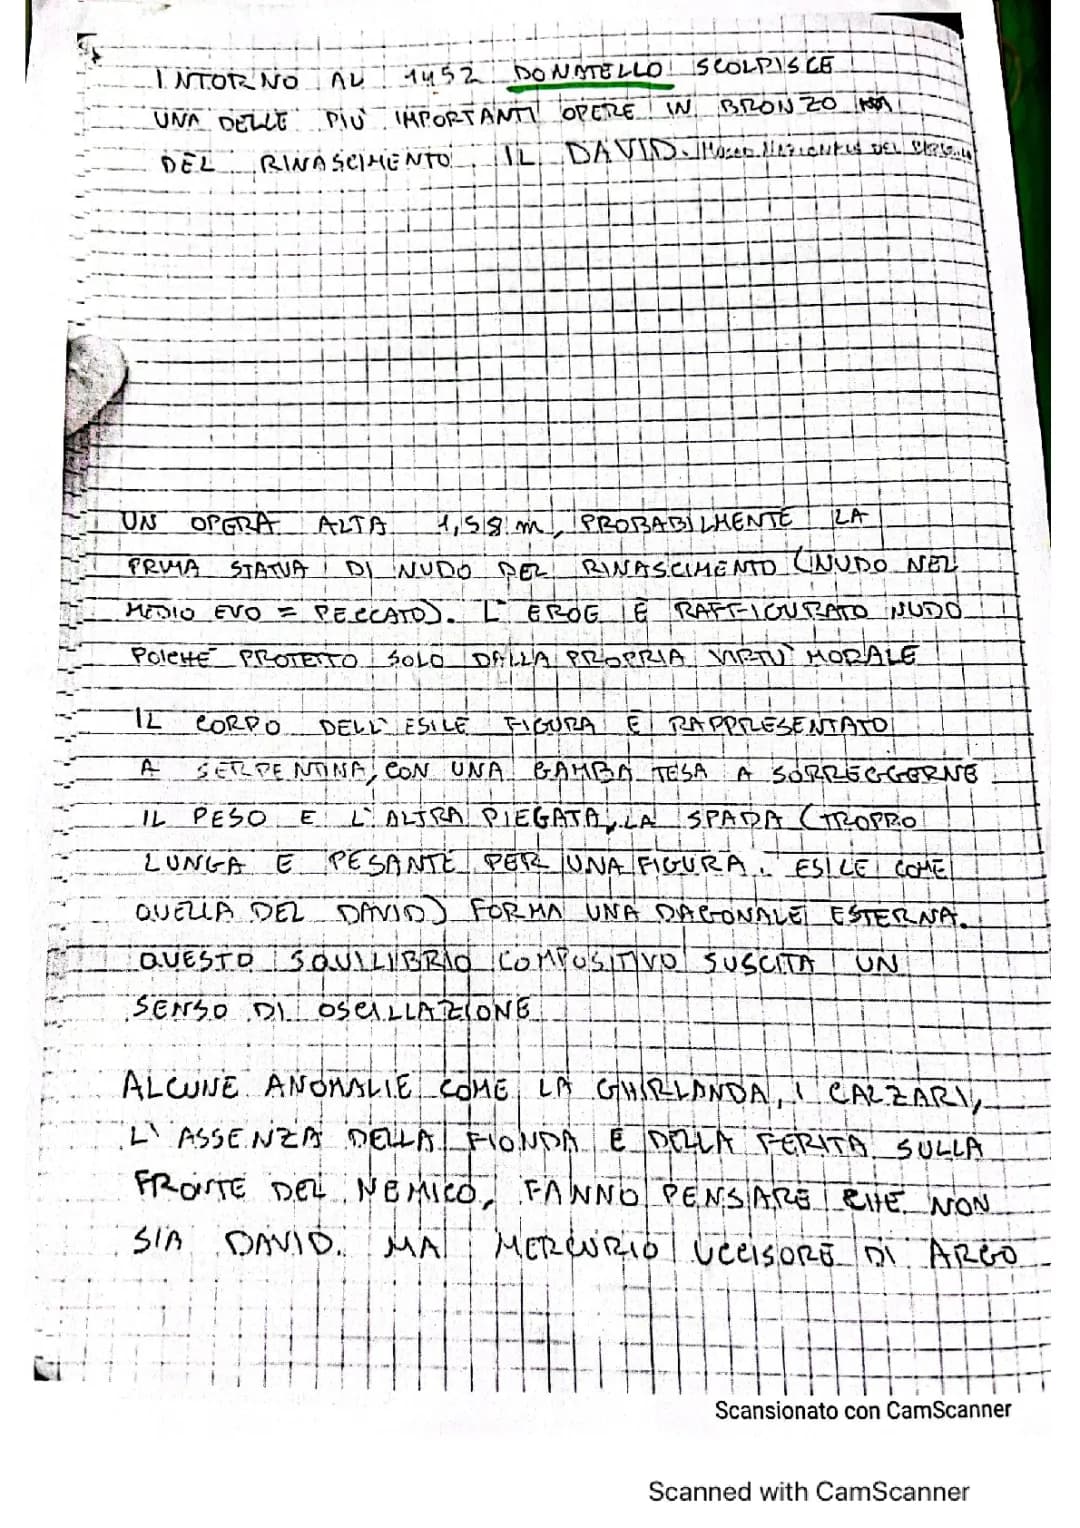 INTORNO AL 1452 DONATELLO SCOLPISCE
UNA DELLE PIÙ IMPORTANTI OPERE IN BRONZO
DEL RINASCIMENTO IL DAVID.
UN OPERA ALTA 1,58 m, PROBABILMENTE LA
PRIMA STATUA DI NUDO DEL RINASCIMENTO (NUDO NEL
MEDIO EVO = PECCATO). L'EROE È RAFFIGURATO NUDO
POICHÉ PROTETTO SOLO DALLA PROPRIA VIRTÙ MORALE
IL CORPO DELL'ESILE FIGURA È RAPPRESENTATO
A SERPENTINA, CON UNA GAMBA TESA A SORREGGERNE
IL PESO E L'ALTRA PIEGATA, LA SPADA (TROPPO
LUNGA E PESANTE PER UNA FIGURA ESILE COME
QUELLA DEL DAVID) FORMA UNA DAGONALE ESTERNA.
QUESTO SQUILIBRIO COMPOSITIVO SUSCITA UN
SENSO DI OSCILLAZIONE
ALCUNE ANOMALIE COME LA GHIRLANDA, I CALZARI,
L'ASSENZA DELLA FIONDA E DELLA FERITA SULLA
FRONTE DEL NEMICO, FANNO PENSARE CHE NON
SIA DAVID. MA MERCURIO UCCISORE DI ARGO
Scansionato con CamScanner
Scanned with CamScanner